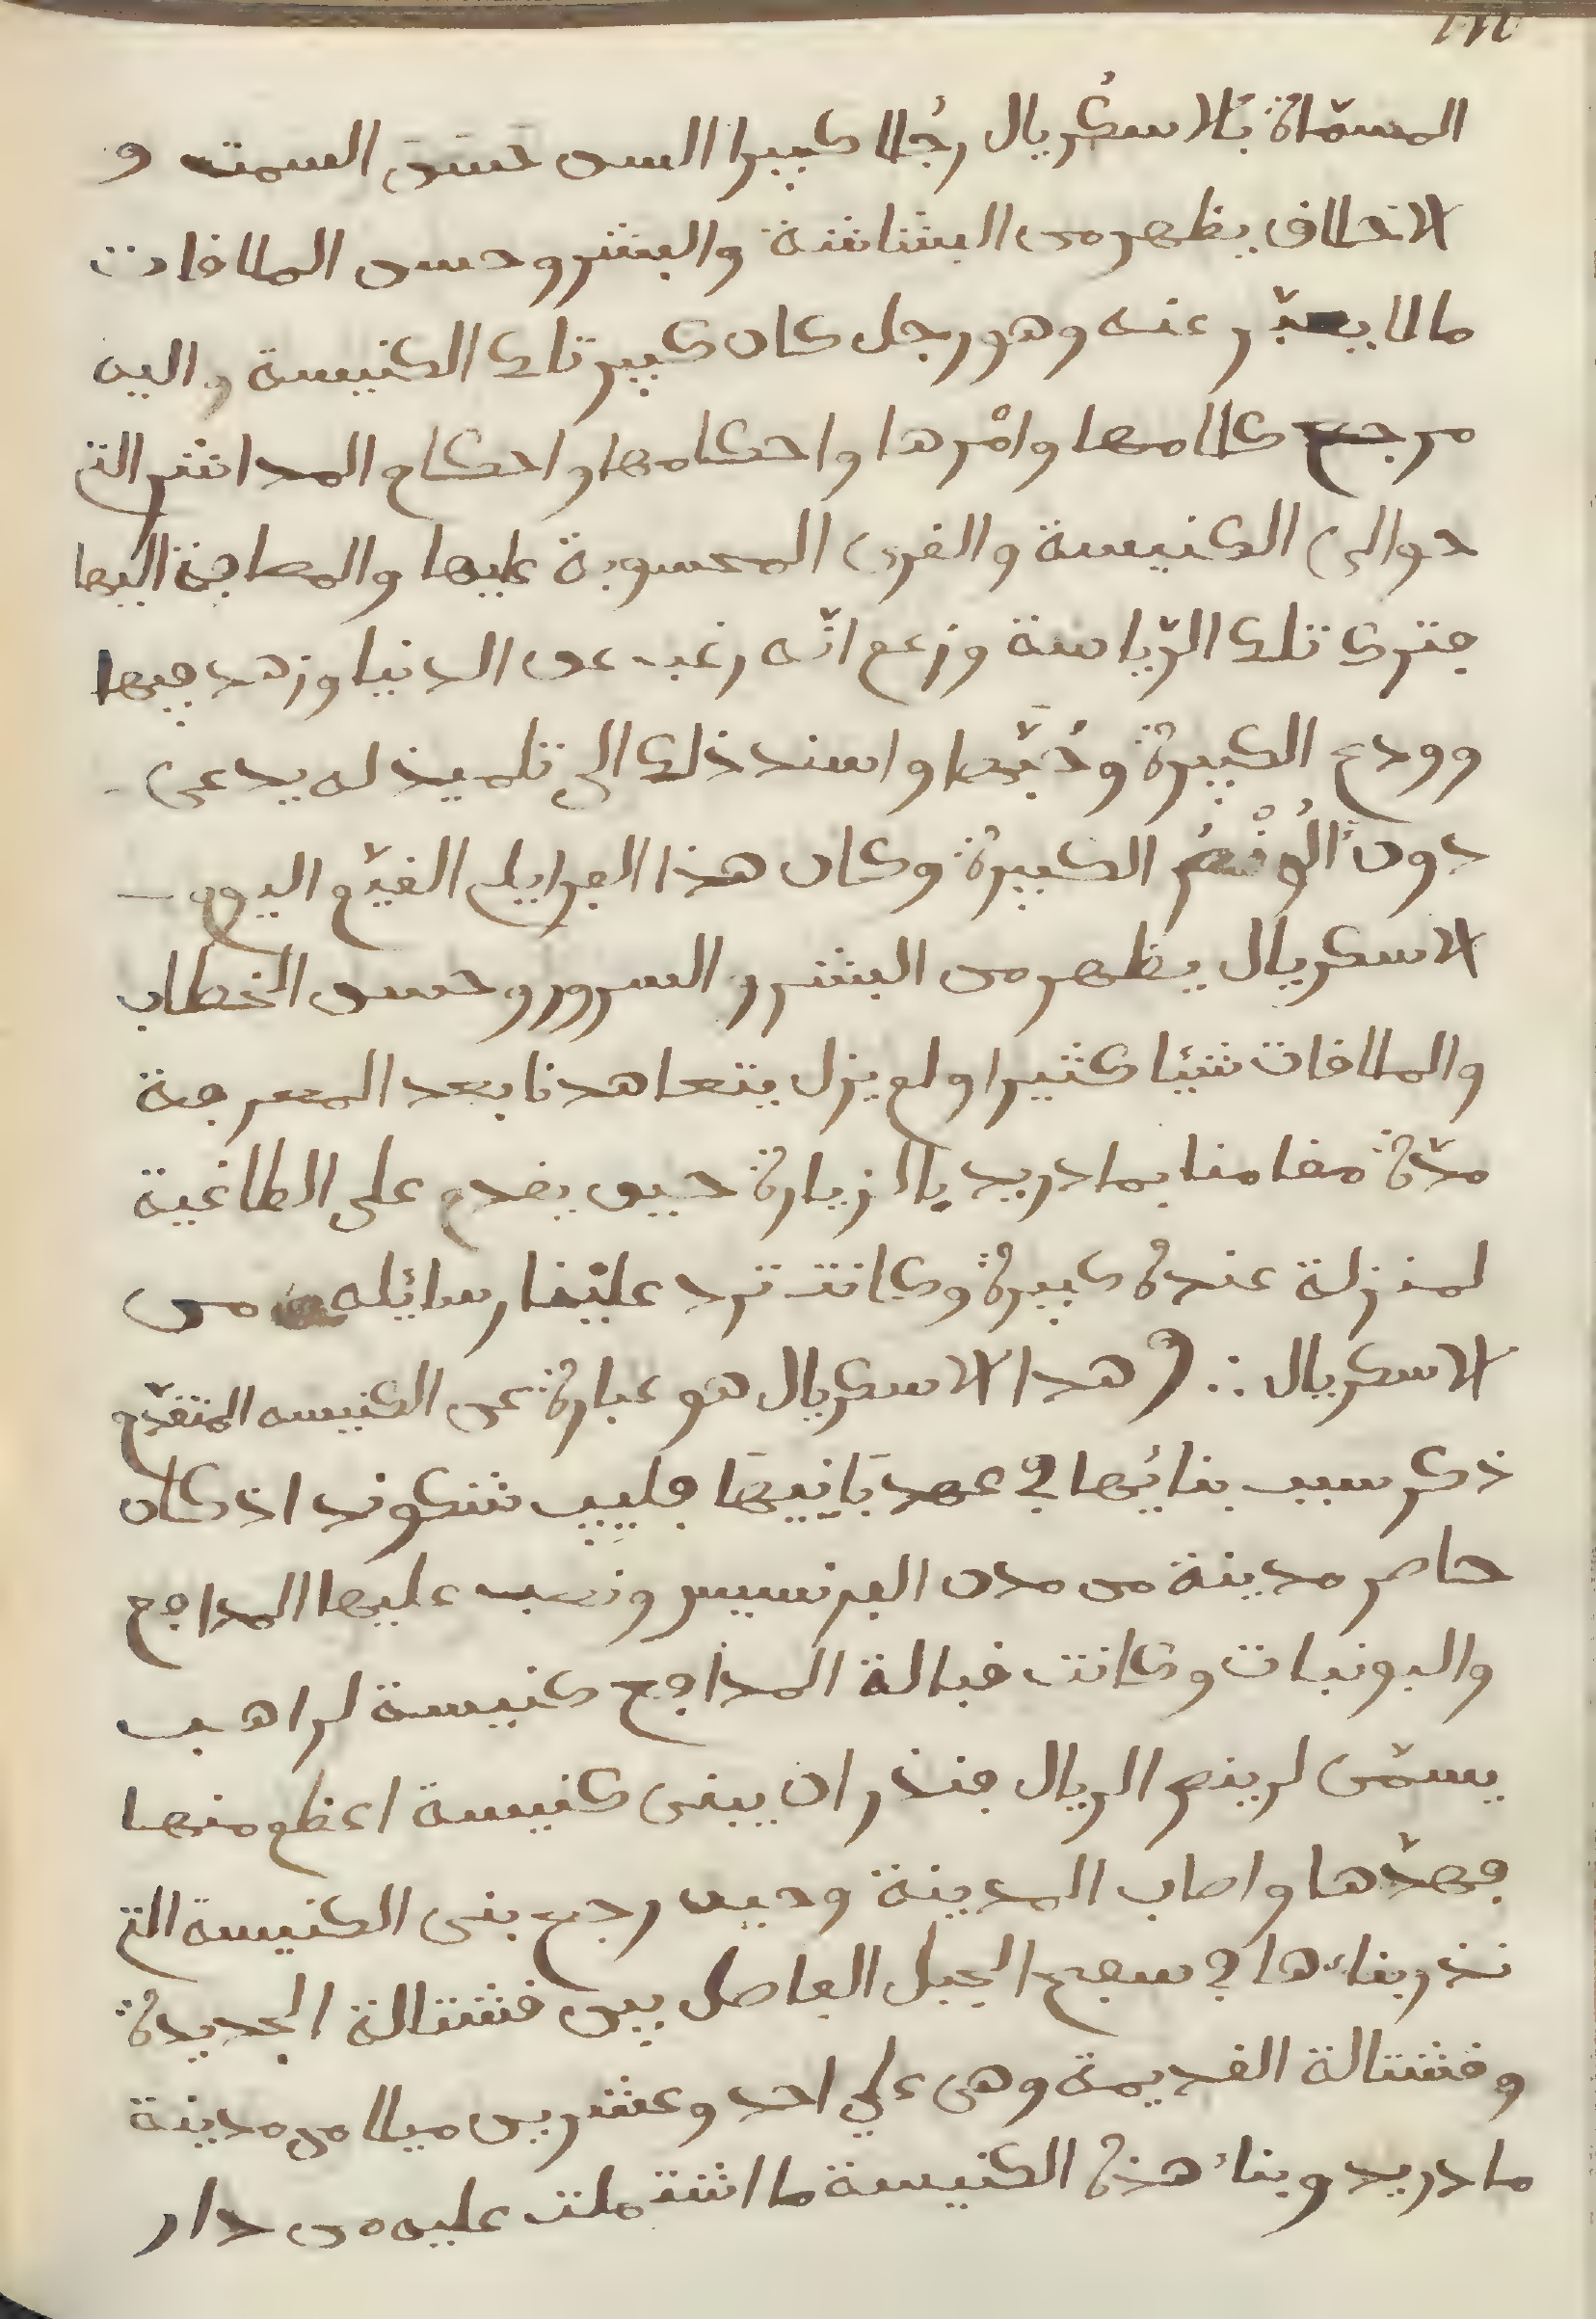 المسمّاة بالاسكُريال رجُلا كبيرا السن حَسَنَ السمت و
الاخلاق يظهر من البشاشة والبشر وحسن الملاقات
ما لا يعبّر عنه وهو رجل كان كبير تلك الكنيسة واليه
مرجع كلامها وامْرها واحكامها واحكام المداشر التي
حوالي الكنيسة والقرى المحسوبة عليها والمضافة اليها
فترك تلك الرّياسة وزعم انّه رغب عن الدنيا وزهد فيها
وودع الكبيرة وحُبَّها واسند ذلك الى تلميذ له يدعى
دون الكبيرة وكان هذا الفرايلي القيّم اليوم
الاسكريال يظهر من البشر والسرور وحسن الخطاب
والملاقات شيئا كثيرا ولم يزل يتعاهدنا بعد المعرفة
مدّة مقامنا بمادريد بالزيارة حين يقدم على الطاغية
لمنزلة عنده كبيرة وكانت ترد علينا رسائله من
الاسكريال ∴ وهذا الاسكريال هو عبارة عن الكنيسه المتقدّم
ذكر سبب بنائها في عهد بَانِيهَا فليِب شكوند اذ كان
حاصر مدينة من مدن الفرنسيس ونصب عليها المدافع
والبونبات وكانت قبالة المدافع كنيسة لراهب
يسمّى لرينص الريال فنذر ان يبنى كنيسة اعظم منها
فهدّها واصاب المدينة وحين رجع بنى الكنيسة التي
نذر بناءها في سفح الجبل الفاصل بين قشتالة الجديدة
وقشتالة القديمة وهى علي احد وعشرين ميلا من مدينة
مادريد وبناء هذه الكنيسة ما اشتملت عليه من دار